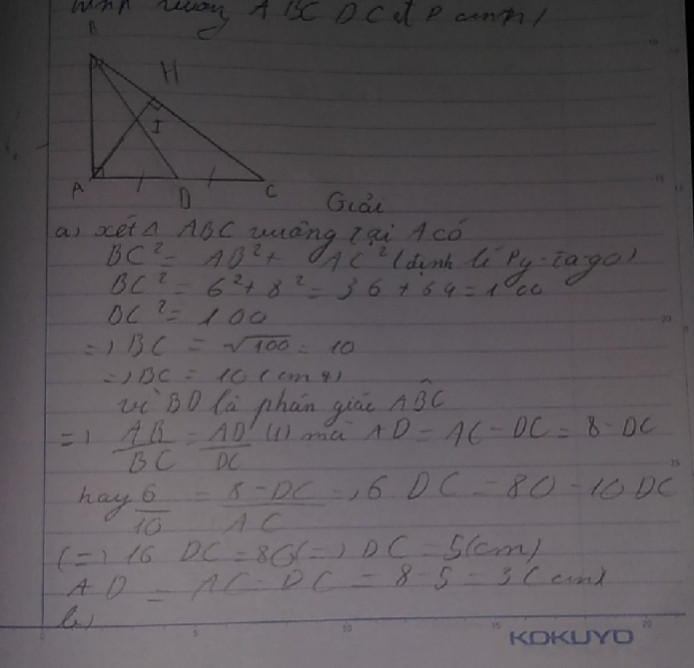 vuông ABC
B
H
I
A D C
Giải
a) xét Δ ABC vuông tại A có
BC² = AB² + AC² (định lí Py-ta-go)
BC² = 6² + 8² = 36 + 64 = 100
BC² = 100
=) BC = √100 = 10
=) BC = 10 (cm)
vì BD là phân giác ABC
=) AB/BC = AD/DC (1) mà AD = AC - DC = 8 - DC
hay 6/10 = 8 - DC/AC =) 6 DC = 80 - 10 DC
(=) 16 DC = 80 (=) DC = 5 (cm)
AD = AC - DC = 8 - 5 = 3 (cm)
b)
5 10 15 20
KOKUYO